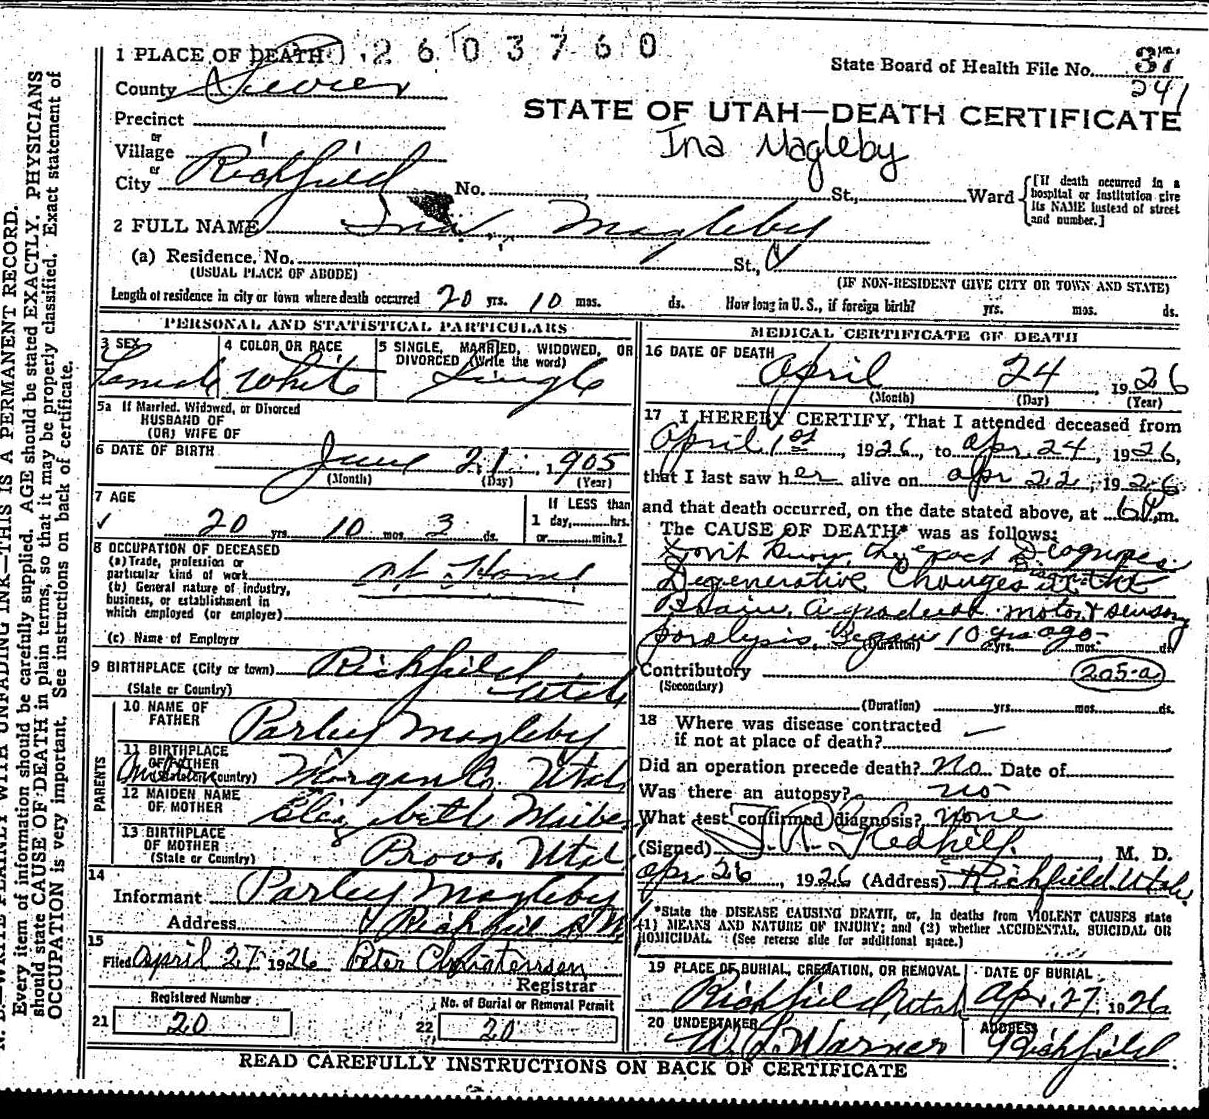 2603760
1 PLACE OF DEATH
State Board of Health File No. 37
241
County Sevier
STATE OF UTAH—DEATH CERTIFICATE
Precinct
Ina Magleby
or
Village
or
City Richfield No. St., Ward
[If death occurred in a hospital or institution give its NAME instead of street and number.]
2 FULL NAME Ina Magleby
(a) Residence. No. St.,
(USUAL PLACE OF ABODE) (IF NON-RESIDENT GIVE CITY OR TOWN AND STATE)
Length of residence in city or town where death occurred 20 yrs. 10 mos. ds. How long in U.S., if foreign birth? yrs. mos. ds.
PERSONAL AND STATISTICAL PARTICULARS
3 SEX Female
4 COLOR OR RACE White
5 SINGLE, MARRIED, WIDOWED, OR DIVORCED (Write the word) Single
5a If Married, Widowed, or Divorced
HUSBAND OF
(OR) WIFE OF
6 DATE OF BIRTH June 21, 1905
(Month) (Day) (Year)
7 AGE
20 yrs. 10 mos. 3 ds.
If LESS than
1 day, hrs.
or min.?
8 OCCUPATION OF DECEASED
(a) Trade, profession or
particular kind of work At Home
(b) General nature of industry,
business, or establishment in
which employed (or employer)
(c) Name of Employer
9 BIRTHPLACE (City or town) Richfield
(State or Country) Utah
PARENTS
10 NAME OF
FATHER Parley Magleby
11 BIRTHPLACE
OF FATHER
(State or Country) Morgan Co. Utah
12 MAIDEN NAME
OF MOTHER Elizabeth
13 BIRTHPLACE
OF MOTHER
(State or Country) Provo, Utah
14
Informant Parley Magleby
Address Richfield
15
Filed April 27 1926 Peter Christensen
Registrar
Registered Number
21 20
No. of Burial or Removal Permit
22 20
MEDICAL CERTIFICATE OF DEATH
16 DATE OF DEATH
April 24, 1926
(Month) (Day) (Year)
17 I HEREBY CERTIFY, That I attended deceased from
April 1st, 1926, to Apr. 24, 1926,
that I last saw her alive on Apr 22, 1926
and that death occurred, on the date stated above, at 6 m.
The CAUSE OF DEATH* was as follows:
Don't know the exact Diagnosis
Degenerative Changes in the
Brain. A gradual motor & sensory
paralysis. Began 10 yrs ago
(Duration) yrs. mos. ds.
Contributory 205-a
(Secondary)
(Duration) yrs. mos. ds.
18 Where was disease contracted
if not at place of death?
Did an operation precede death? No Date of
Was there an autopsy? no
What test confirmed diagnosis? none
(Signed) , M. D.
Apr 26, 1926 (Address) Richfield Utah
*State the DISEASE CAUSING DEATH, or, in deaths from VIOLENT CAUSES state
(1) MEANS AND NATURE OF INJURY; and (2) whether ACCIDENTAL, SUICIDAL OR
HOMICIDAL. (See reverse side for additional space.)
19 PLACE OF BURIAL, CREMATION, OR REMOVAL
Richfield, Utah
DATE OF BURIAL
Apr. 27, 1926
20 UNDERTAKER
W. L. Warner
ADDRESS
Richfield
READ CAREFULLY INSTRUCTIONS ON BACK OF CERTIFICATE
N. B.—WRITE PLAINLY WITH UNFADING INK—THIS IS A PERMANENT RECORD.
Every item of information should be carefully supplied. AGE should be stated EXACTLY. PHYSICIANS
should state CAUSE OF DEATH in plain terms, so that it may be properly classified. Exact statement of
OCCUPATION is very important. See instructions on back of certificate.